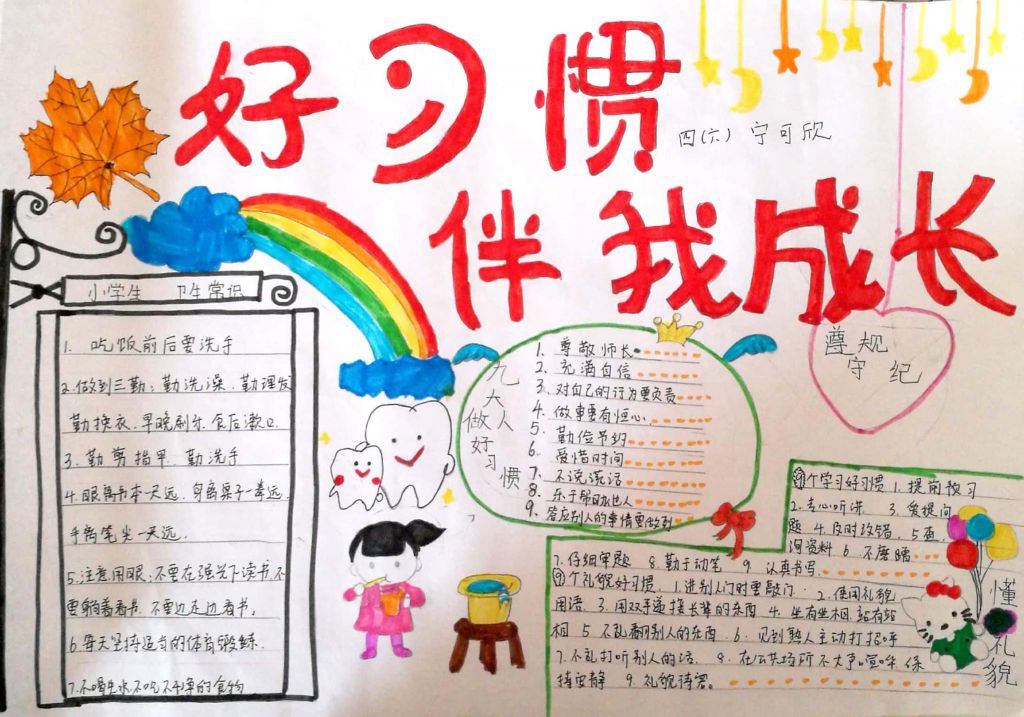 好习惯
四（六）宁可欣
伴我成长
小学生 卫生常识
1. 吃饭前后要洗手
2.做到三勤：勤洗澡、勤理发
勤换衣、早晚刷牙、食后漱口
3. 勤剪指甲、勤洗手
4.眼离书本一尺远、身离桌子一拳远、
手离笔尖一寸远.
5.注意用眼：不要在强光下读书,不
要躺着看书、不要边走边看书。
6.每天坚持适当的体育锻练.
7.不喝生水不吃不干净的食物
九大做人好习惯
1、尊敬师长
2、充满自信
3、对自己的行为要负责
4、做事要有恒心
5、勤俭节约
6、爱惜时间
7、不说谎话
8、乐于帮助他人
9、答应别人的事情要做到
尊规
守纪
9个学习好习惯 1.提前预习
2.专心听讲 3.爱提问
题 4.及时改错、5.查
询资料 6.不磨蹭
7.仔细审题 8.勤于动笔 9.认真书写
9个礼貌好习惯、1.进别人门时要敲门 2.使用礼貌
用语、3.用双手递接长辈的东西 4.坐有坐相、站有站
相 5.不乱翻别人的东西、6.见到熟人主动打招呼
7.不乱打听别人的话、8.在公共场所不大声喧哗、保
持安静 9.礼貌待客。
懂礼貌